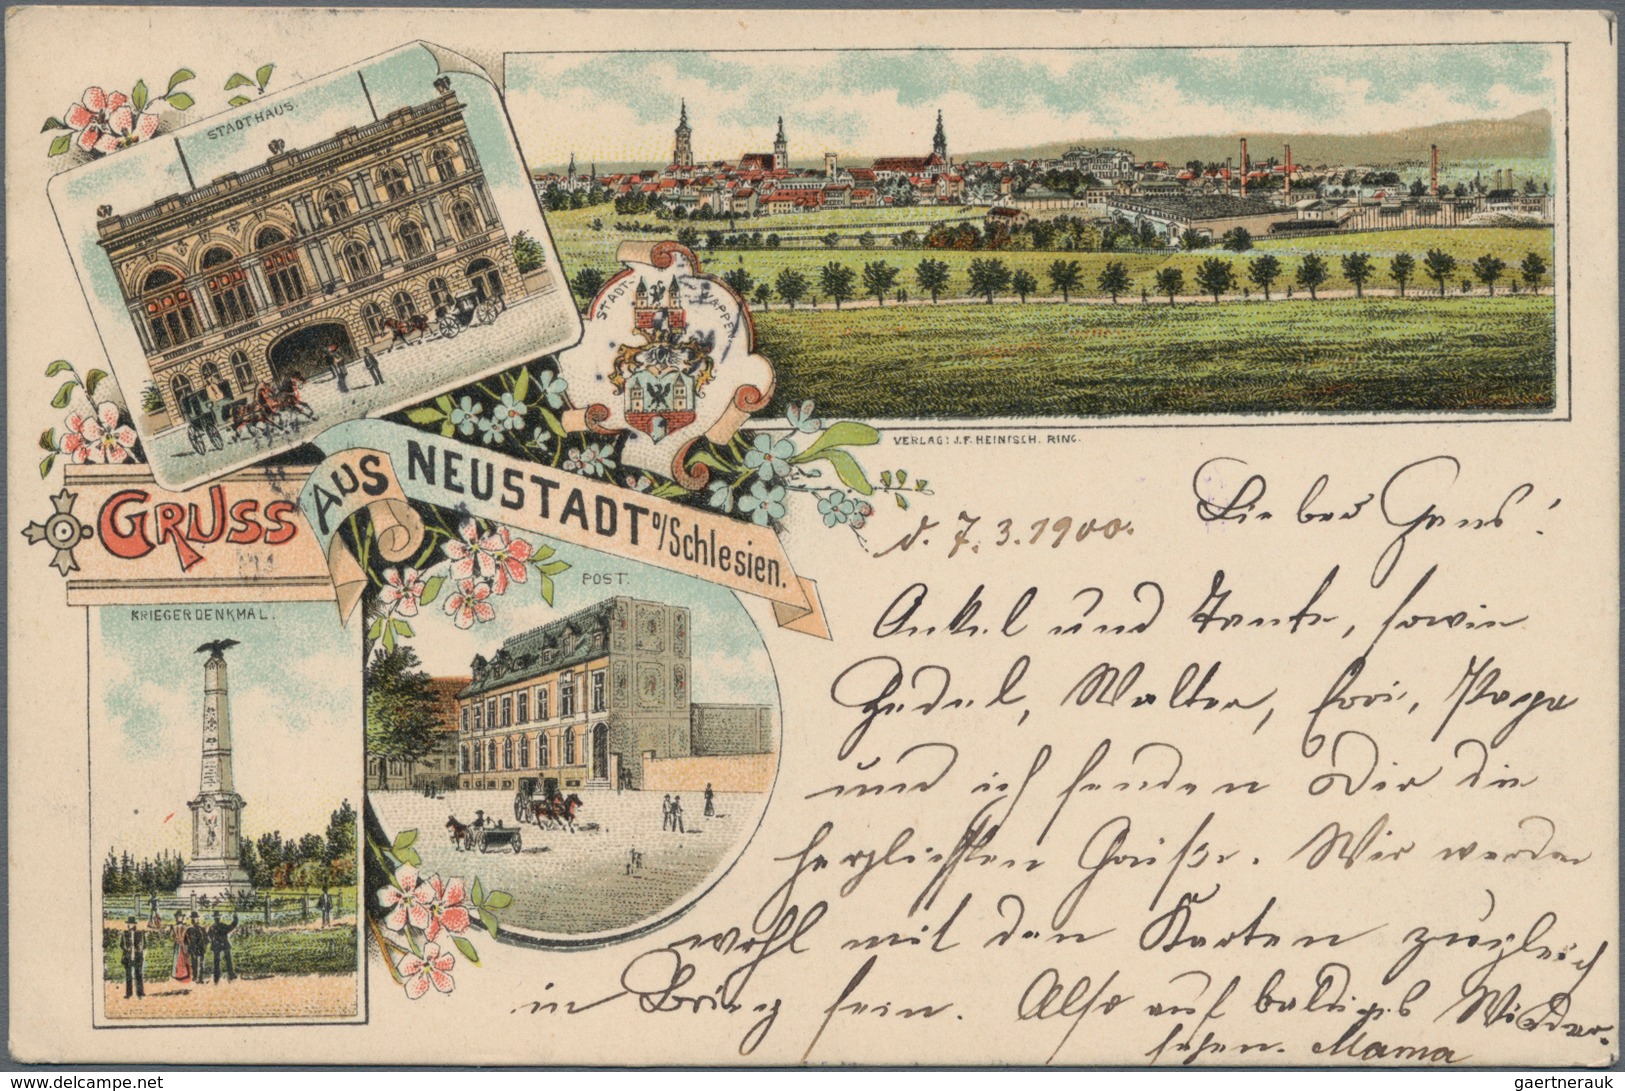 STADTHAUS.
STADT-WAPPEN
VERLAG: J.F. HEINISCH. RING.
GRUSS AUS NEUSTADT O/Schlesien.
KRIEGERDENKMAL.
POST.
d. 7.3.1900. Lieber Hans!
Onkel und Tante, sowie
Walter, Papa
und ich senden Dir die
herzlichsten Grüße. Wir werden
wohl mit den Karten zugleich
in Brieg sein. Also auf baldiges Wieder-
sehen. Mama
gaertnerauk